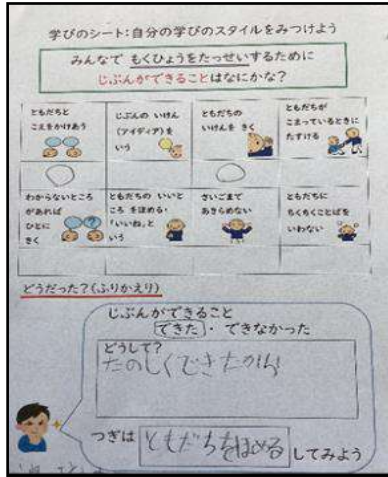 学びのシート:自分の学びのスタイルをみつけよう
みんなで もくひょうをたっせいするために
じぶんができることはなにかな?
ともだちと
こえをかけあう
じぶんの いけん
(アイディア)を
いう
ともだちの
いけんを きく
ともだちが
こまっているときに
たすける
わからないところ
があれば
ひとに
きく
ともだちの いいと
ころ をほめる・
「いいね」と
いう
さいごまで
あきらめない
ともだちに
ちくちくことばを
いわない
どうだった?(ふりかえり)
じぶんができること
できた・できなかった
どうして?
たのしくできたから
つぎは ともだちをほめる してみよう